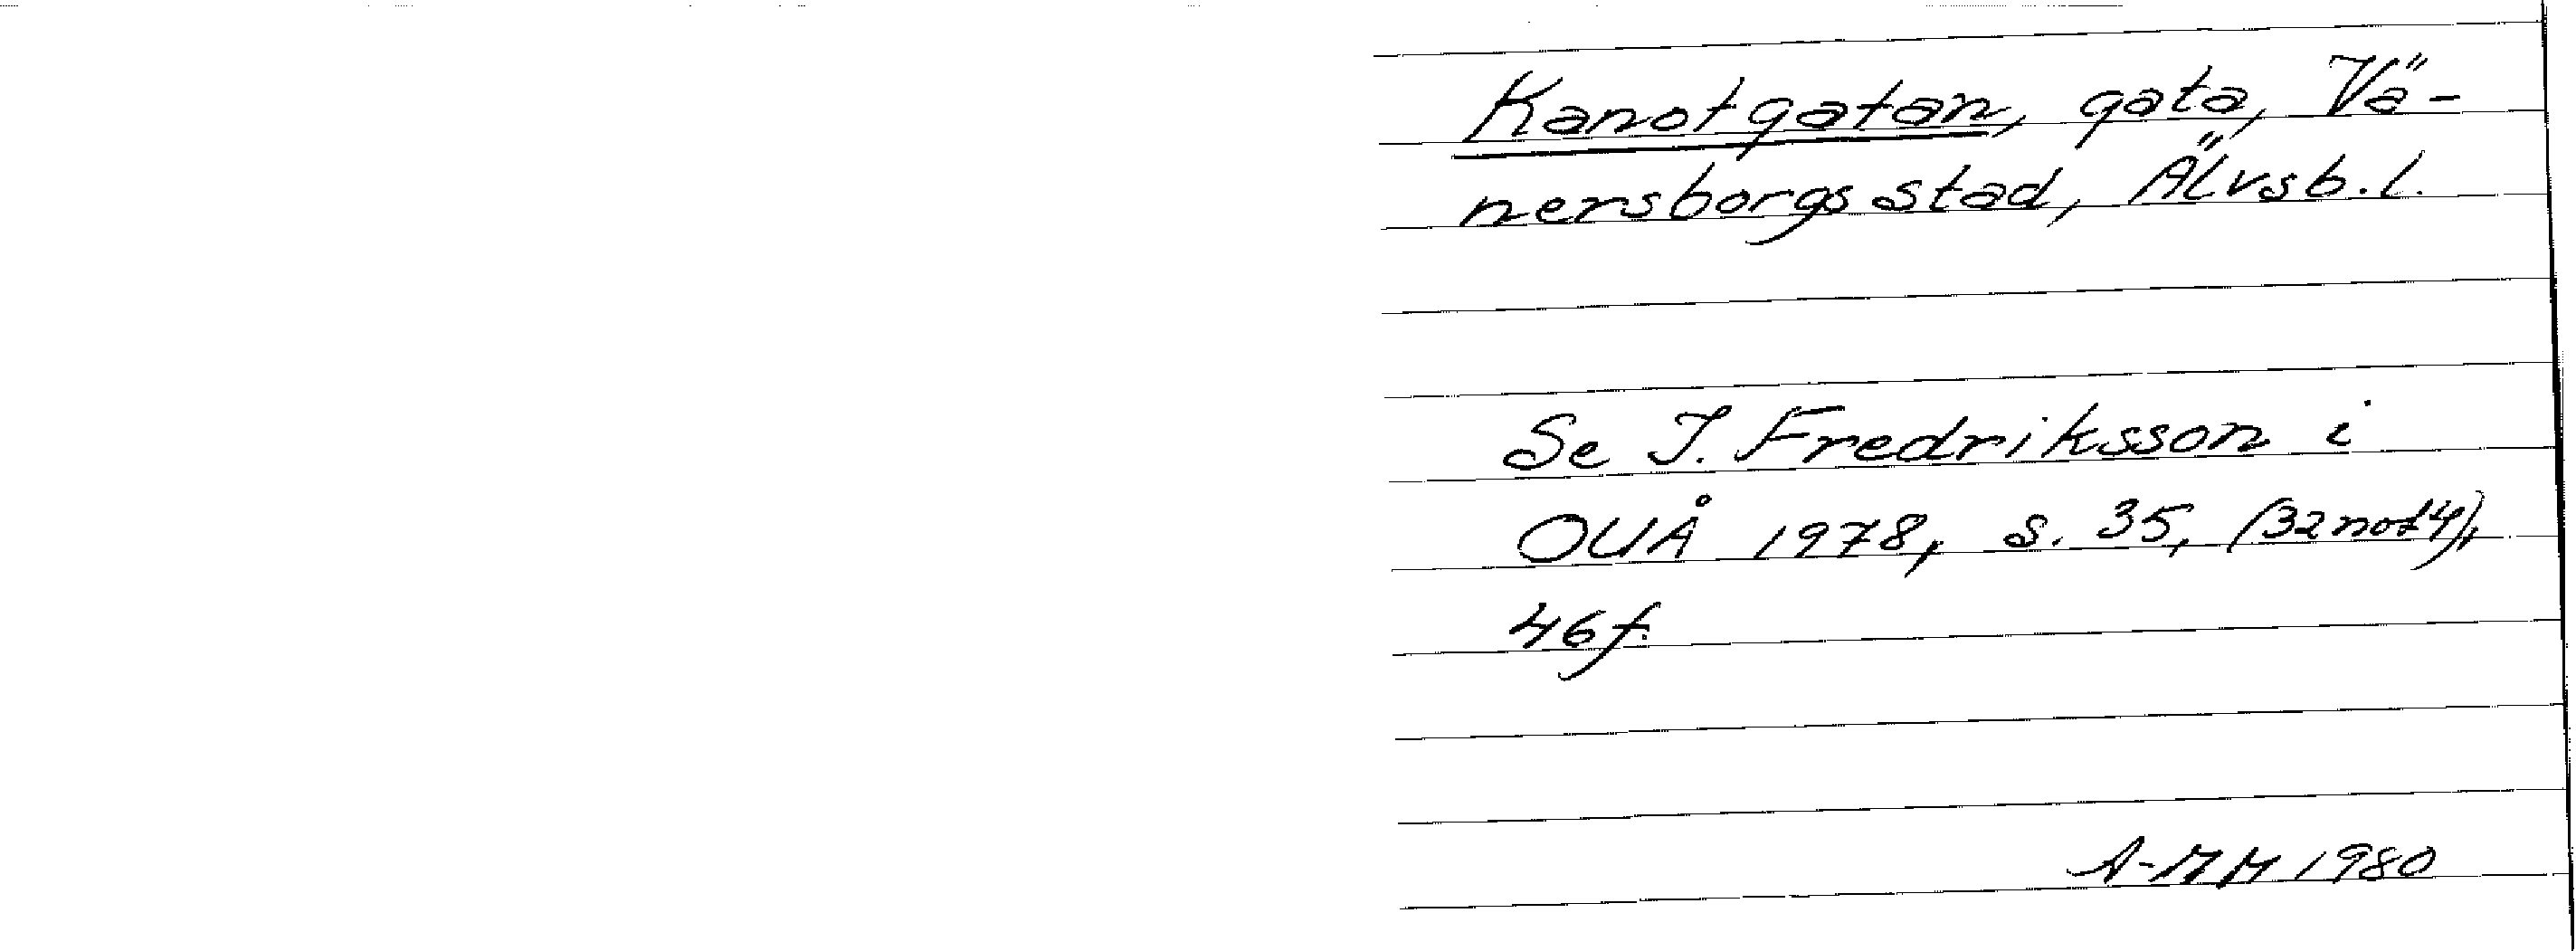 Kanotgatan, gata, Vä-
nersborgs stad, Älvsb. l.
Se I. Fredriksson i
OUÅ 1978, s. 35, (32 not 4),
46 f.
A-MM 1980